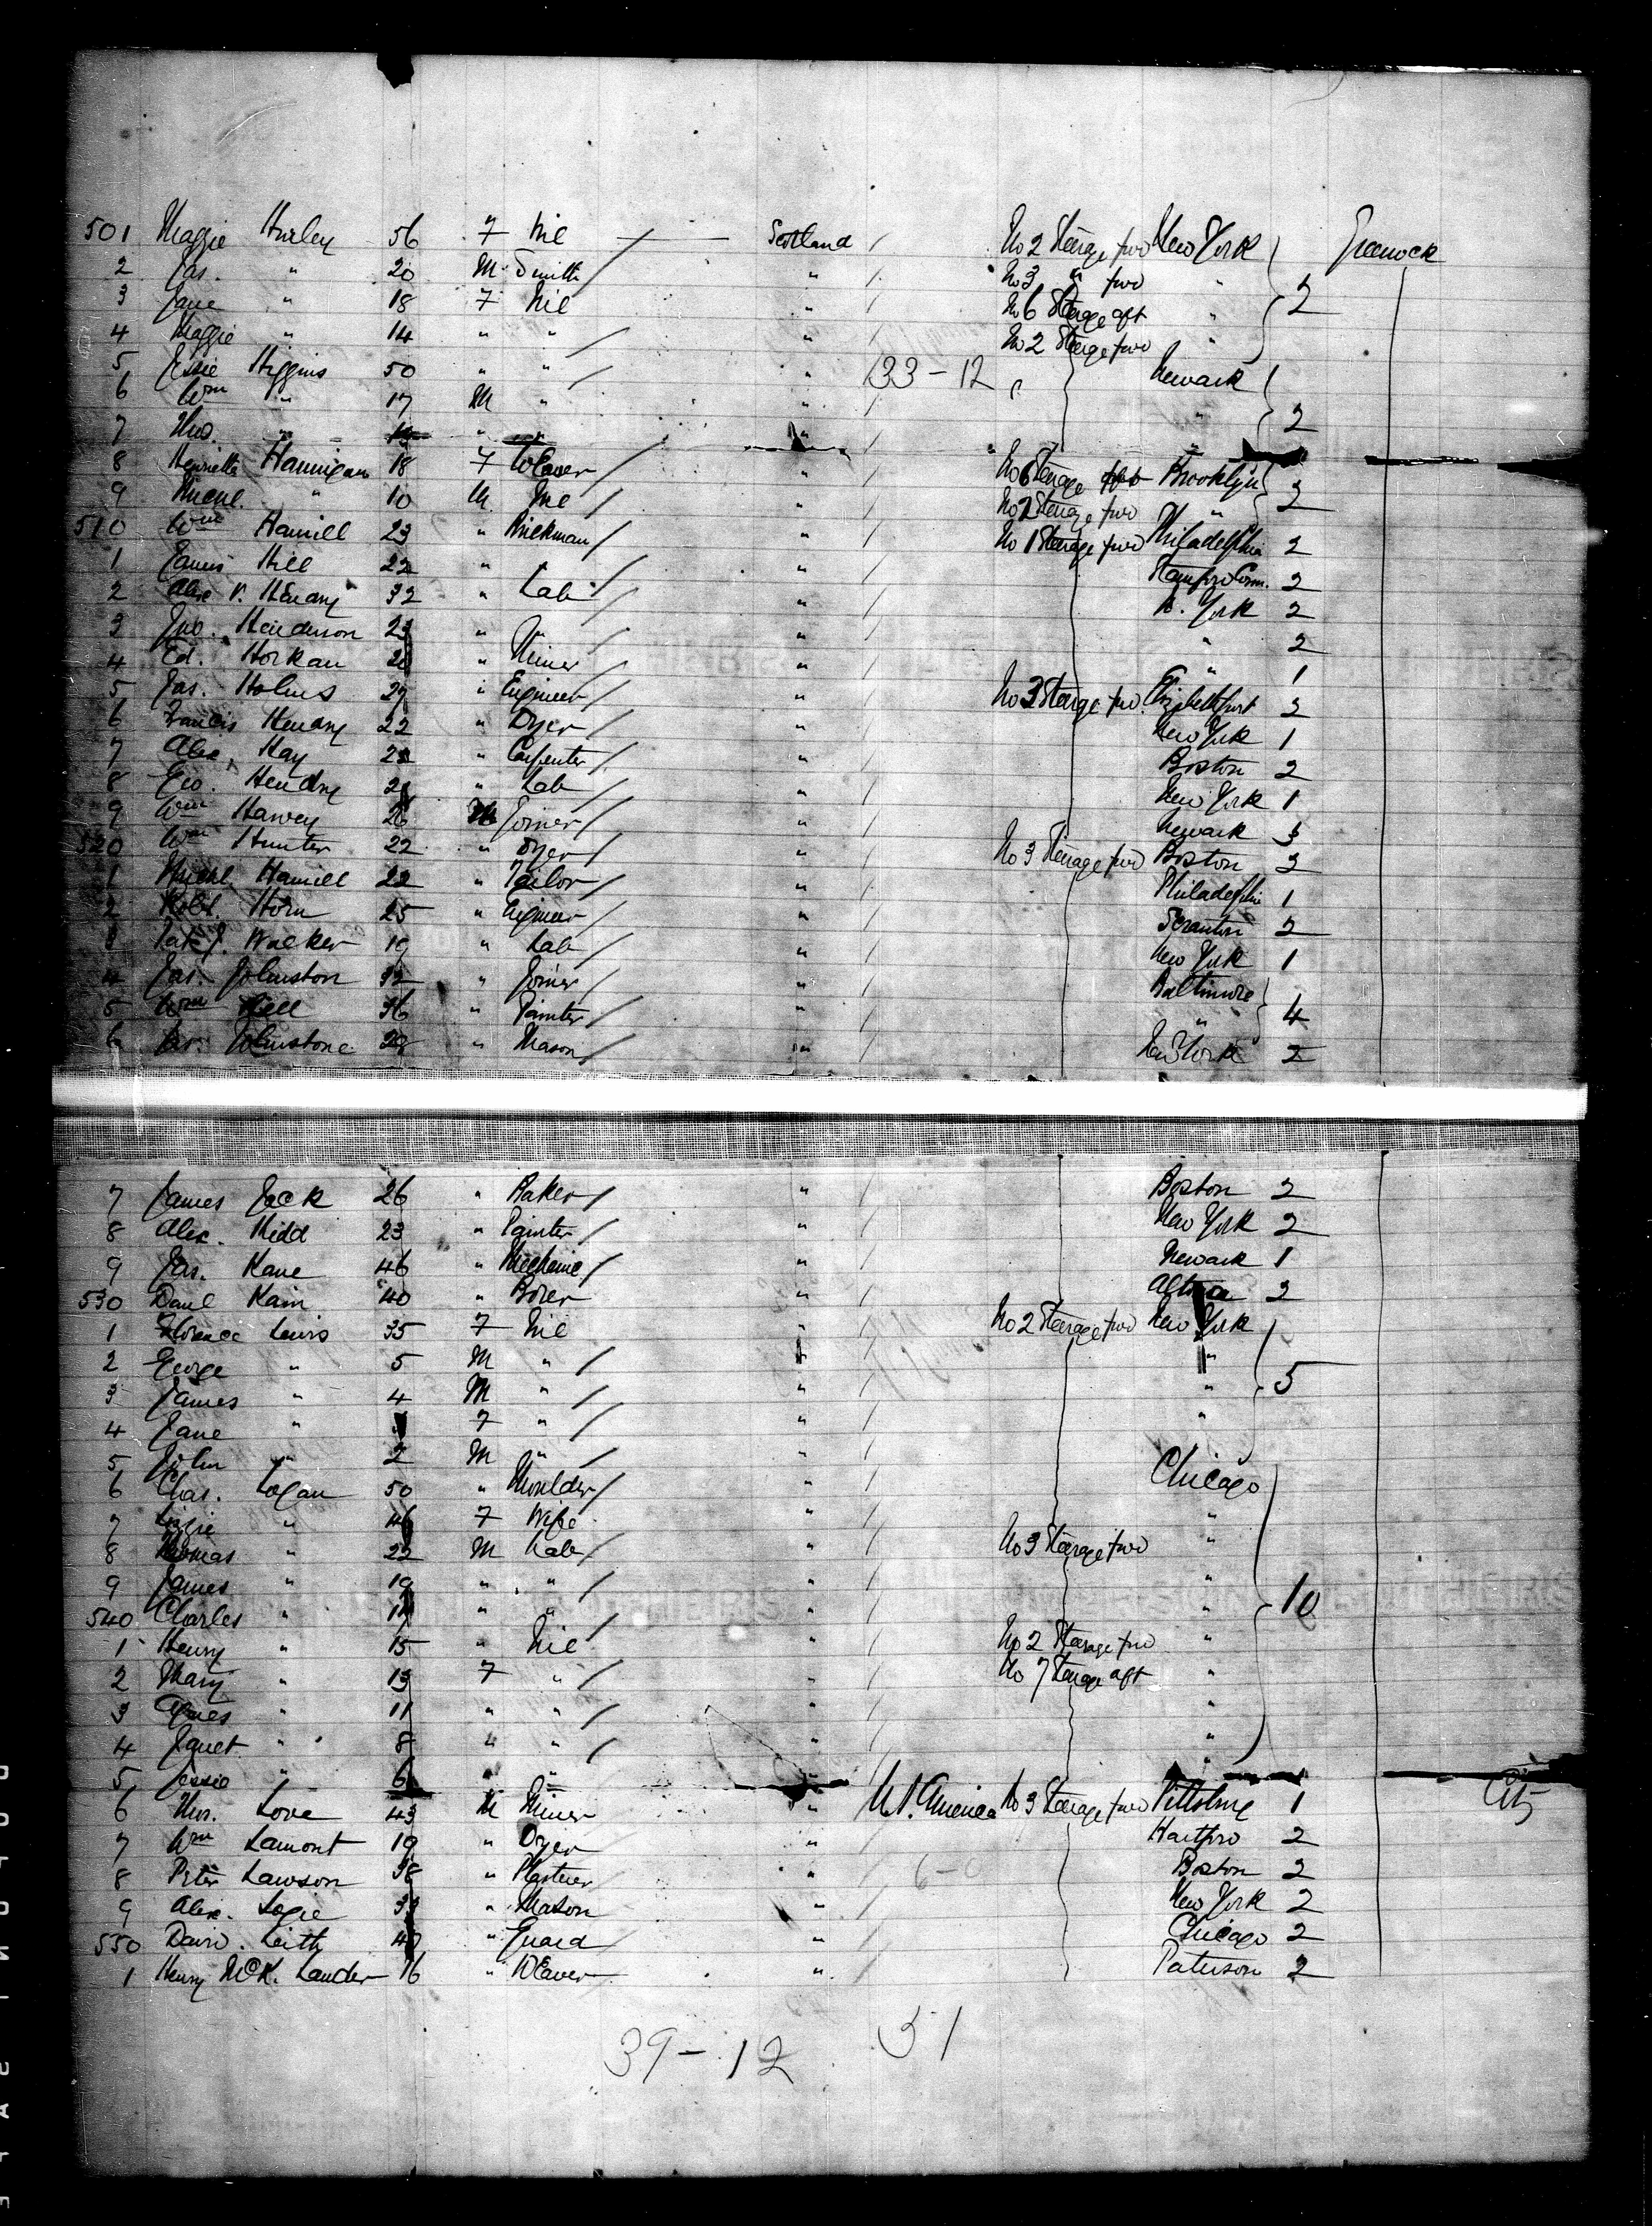 501 Maggie Hurley 56 F Nil Scotland / No 2 Steerage fwd New York Greenock
2 Jas. " 20 M Smith " / No 3 " fwd "
3 Jane " 18 F Nil " / No 6 Steerage aft " 2
4 Maggie " 14 " " " / No 2 Steerage fwd "
5 Jessie Higgins 50 " " " 33-12 Newark
6 Wm " 17 M " " / " 2
7 Thos. " " " /
8 Henrietta Hannigan 18 F Weaver " / No 6 Steerage Brooklyn
9 Michl. " 10 M. Nil " / No 2 Steerage fwd " 2
510 Wm Hamill 23 " " / No 1 Steerage fwd Philadelphia 2
1 James Hill 22 " " " / Stamford Conn. 2
2 Alex V. Henary 32 " Lab " / N. York 2
3 Jno. Henderson 23 " " " / " 2
4 Ed. Horkan 20 " Miner " / " 1
5 Jas. Holms 27 " Engineer " / No 3 Steerage fwd. Elizabethport 2
6 Francis Henary 22 " Dyer " / New York 1
7 Alex. Hay " Carpenter " / Boston 2
8 Geo. Hendry 21 " Lab " / New York 1
9 Wm Harvey 26 M Joiner " / Newark 3
520 Wm Hunter 22 " Dyer " / No 3 Steerage fwd Boston 2
1 Michl. Hamill 22 " Tailor " / Philadelphi 1
2 Robt. Horn 25 " Engineer " / Scranton 2
3 Patk J. Walker 19 " Lab " / New York 1
4 Jas. Johnston 32 " Joiner " / Baltimore
5 Wm Kell 36 " Painter " / " 4
6 Jas. Johnstone 28 " Mason " / New York 2
7 James Jack 26 " Baker " / Boston 2
8 Alex. Kidd 23 " Painter " / New York 2
9 Jas. Kane 46 " Mechanic " / Newark 1
530 Danl Kain 40 " Borer " / 2
1 Florence Lewis 35 F Nil " / No 2 Steerage fwd New York
2 George " 5 M " " / "
3 James " 4 M " " / " 5
4 Jane " F " " / "
5 John " 2 M " " /
6 Chas. Logan 50 " Moulder " / Chicago
7 Lizzie " 46 F Wife " / "
8 Thomas " 22 M Lab " / No 3 Steerage fwd "
9 James " 19 " " " / "
540 Charles " 17 " " " / " 10
1 Henry " 15 " Nil " / No 2 Steerage fwd "
2 Mary " 13 F " " / No 7 Steerage aft "
3 Agnes " 11 " " " / "
4 Janet " 8 " " " / "
5 Jessie " 6 " " " "
6 Thos. Love 43 M Miner " N. America No 3 Steerage fwd Pittsburg 1 City
7 Wm Lamont 19 " Dyer " / Hartford 2
8 Peter Lawson 38 " Plasterer " / 6- Boston 2
9 Alex. Logie 33 " Mason " / New York 2
550 David. Leith 40 " Guard " / Chicago 2
1 Henry McK. Lauder 16 " Weaver " / Paterson 2
39-12 51